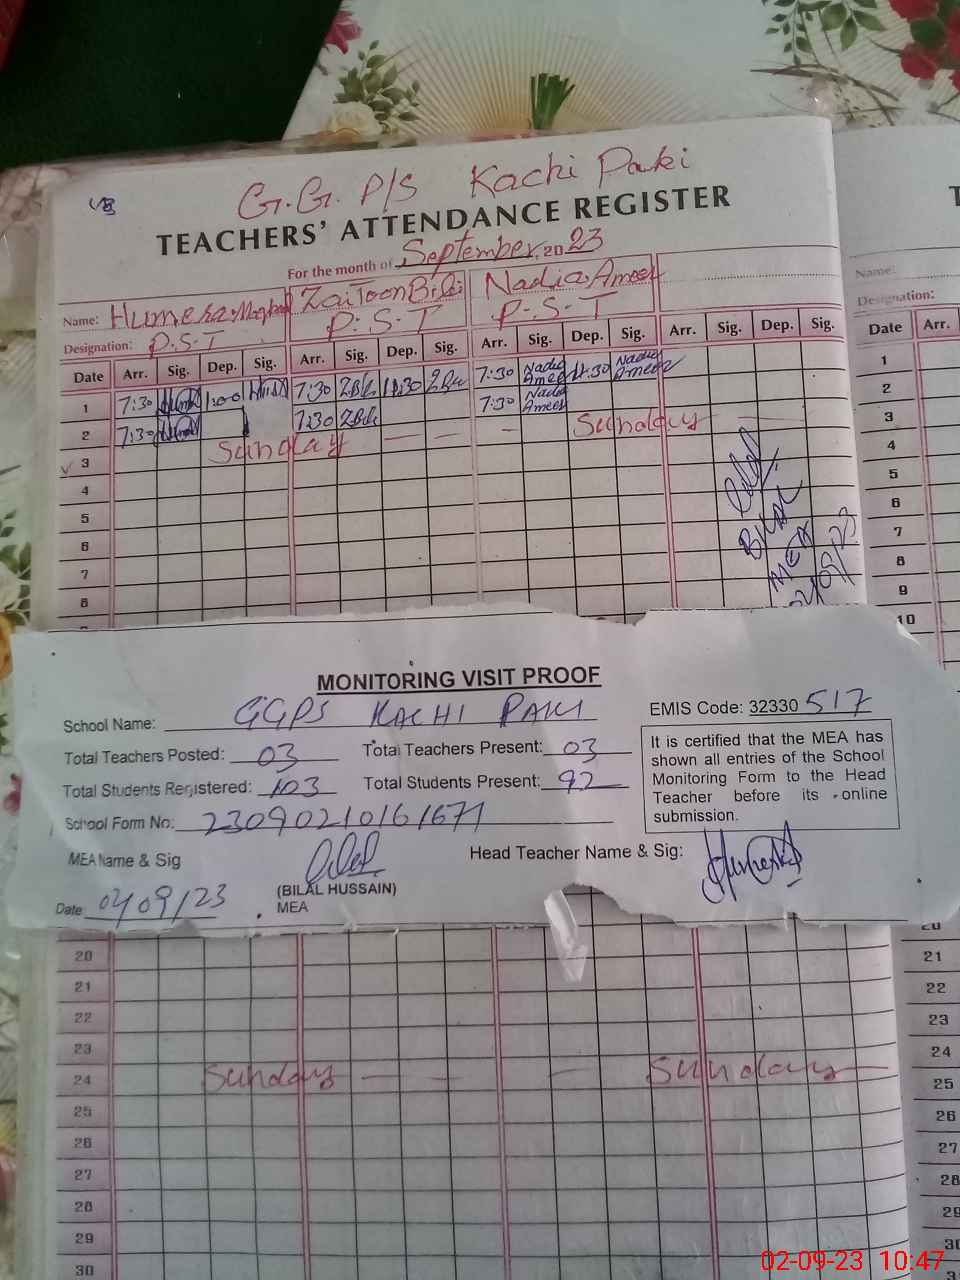 G.G. P/S Kachi Paki
TEACHERS' ATTENDANCE REGISTER
For the month of September 2023
Name: Humera ZaiToon Bibi Nadia Ameer
Designation: P.S.T P.S.T P.S.T
Date Arr. Sig. Dep. Sig. Arr. Sig. Dep. Sig. Arr. Sig. Dep. Sig. Arr. Sig. Dep. Sig.
1 7:30 1:00 7:30 ZBibi 11:30 ZBibi 7:30 Nadia Ameer 11:30 Nadia Ameer
2 7:30 7:30 ZBibi 7:30 Nadia Ameer
3 Sunday — — — Sunday — —
4
5
6
7
8
Bilal
MEA
MONITORING VISIT PROOF
School Name: GGPS KACHI PAKI
EMIS Code: 32330 517
Total Teachers Posted: 03 Total Teachers Present: 03
Total Students Registered: 103 Total Students Present: 92
School Form No: 23090210161671
It is certified that the MEA has
shown all entries of the School
Monitoring Form to the Head
Teacher before its online
submission.
MEA Name & Sig
(BILAL HUSSAIN)
MEA
Head Teacher Name & Sig:
Date 02/09/23
20
21
22
23
24 Sunday — — — Sunday —
25
26
27
28
29
30
Name:
Designation:
Date Arr.
1
2
3
4
5
6
7
8
9
10
20
21
22
23
24
25
26
27
28
29
30
02-09-23 10:47